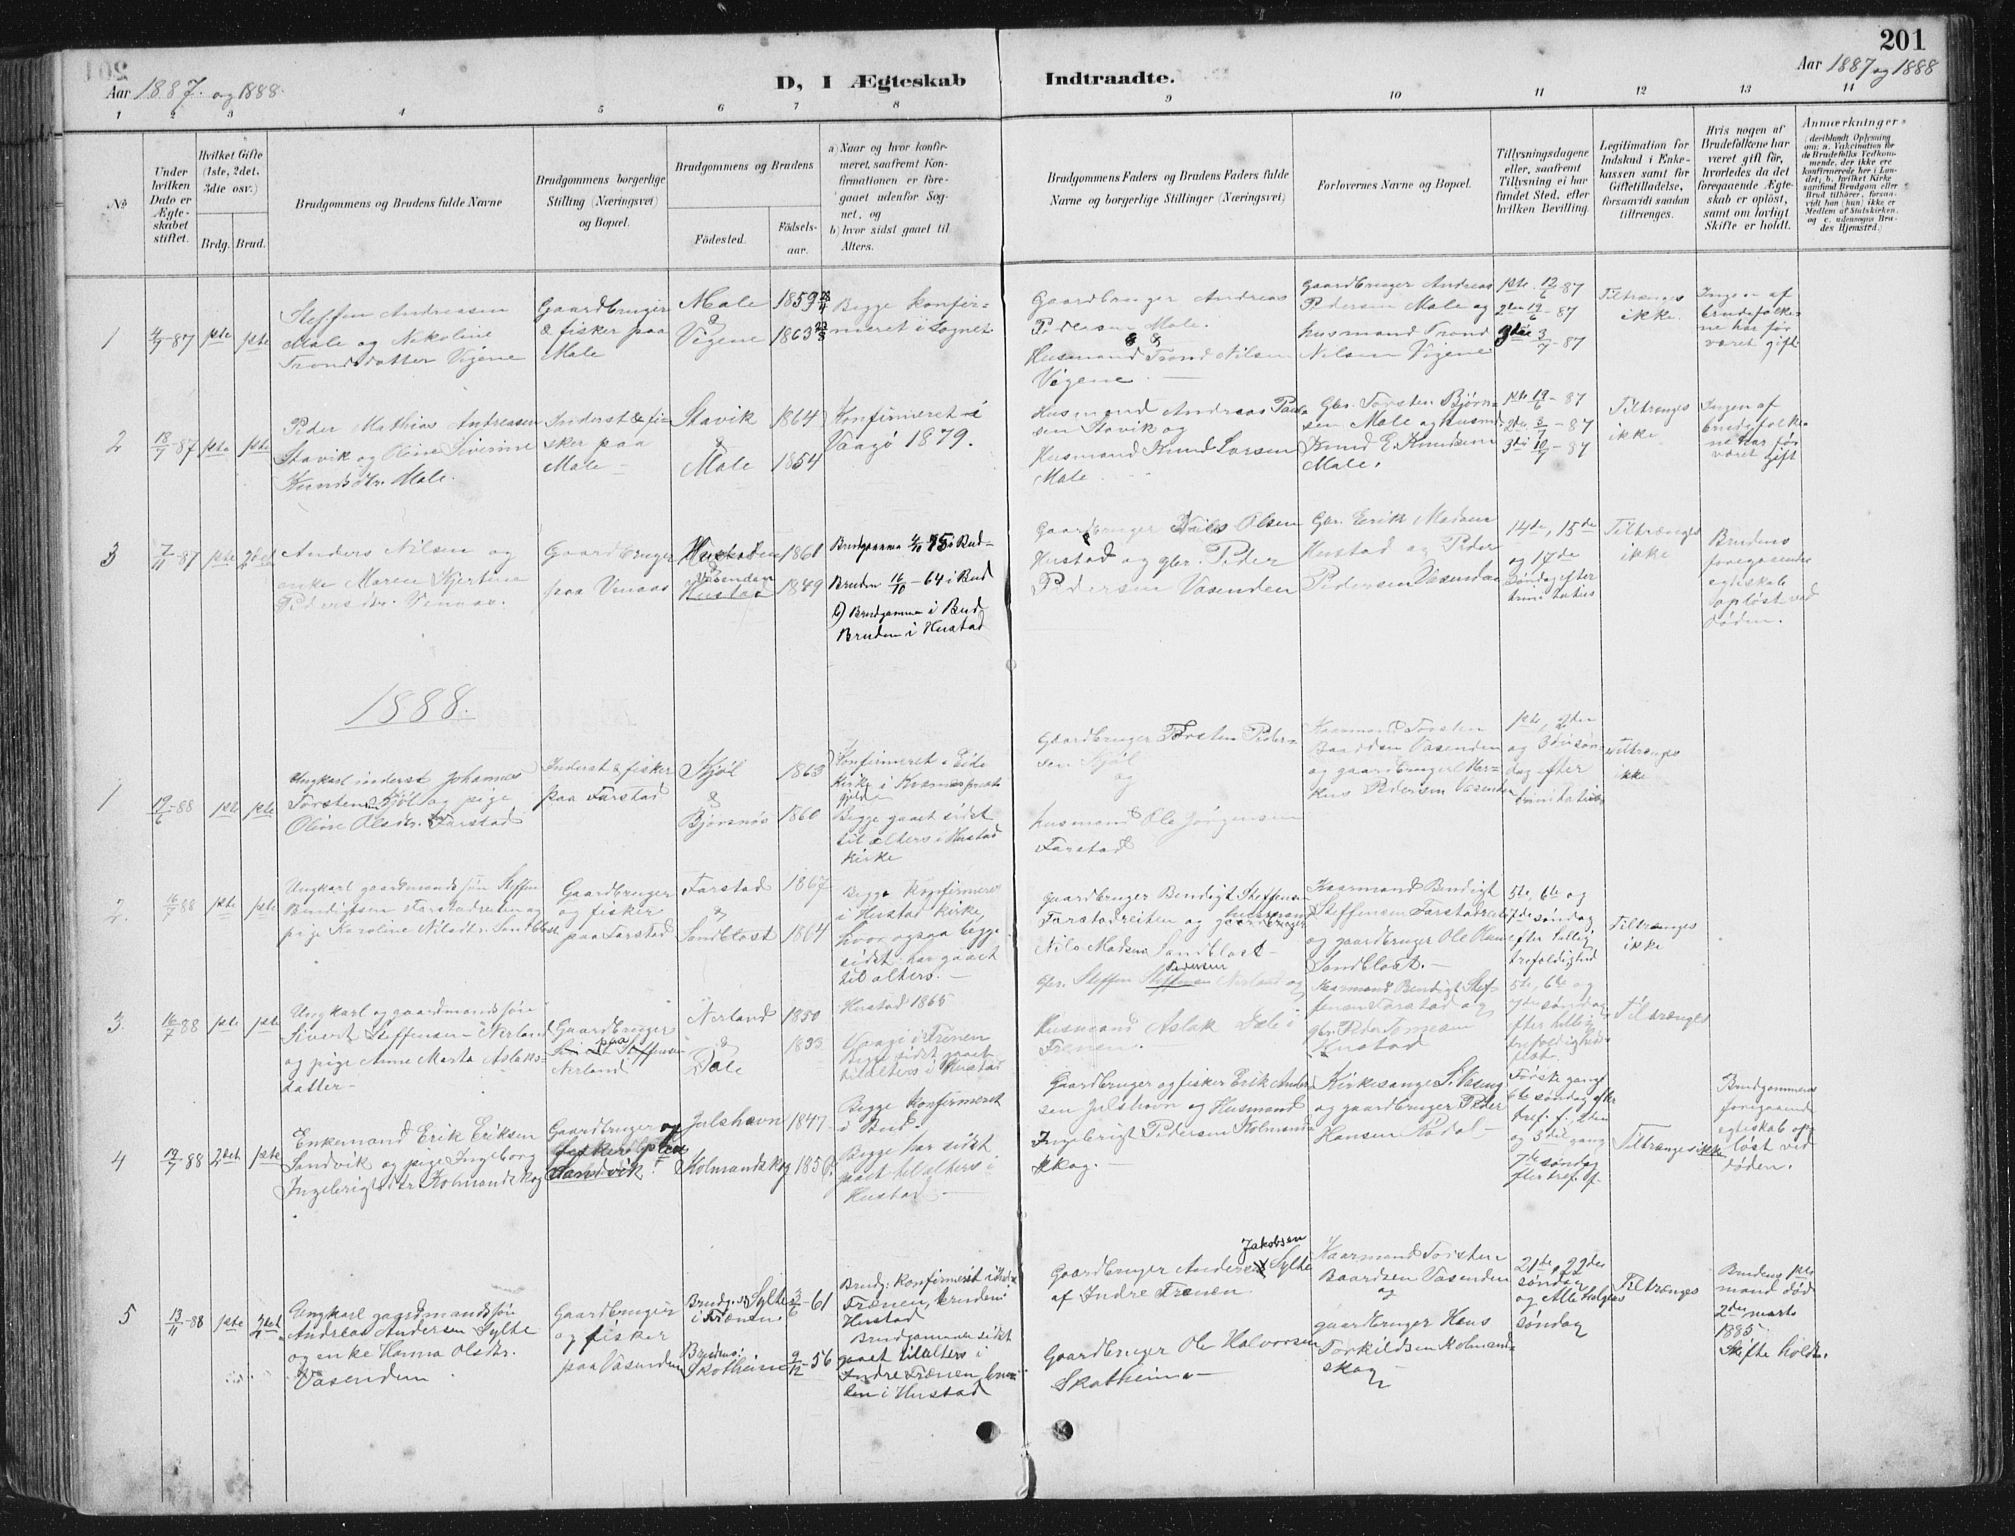 201
Aar 1887. og 1888.
D, I Ægteskab Indtraadte.
Aar 1887 og 1888
1 2 3 4 5 6 7 8 9 10 11 12 13 14
No
Under hvilken Dato er Ægteskabet stiftet.
Hvilket Gifte (1ste, 2det, 3dte osv.)
Brdg. Brud.
Brudgommens og Brudens fulde Navne
Brudgommens borgerlige Stilling (Næringsvei) og Bopæl.
Brudgommens og Brudens
Fødested.
Fødselsaar.
a) Naar og hvor konfirmeret, saafremt Konfirmationen er foregaaet udenfor Sognet, og
b) hvor sidst gaaet til Alters.
Brudgommens Faders og Brudens Faders fulde Navne og borgerlige Stillinger (Næringsvei)
Forlovernes Navne og Bopæl.
Tillysningsdagene eller, saafremt Tillysning ei har fundet Sted, efter hvilken Bevilling.
Legitimation for Indskud i Enkekassen samt for Giftetilladelse, forsaavidt saadan tiltrænges.
Hvis nogen af Brudefolkene har været gift før, hvorledes da det foregaaende Ægteskab er opløst, samt om lovligt Skifte er holdt.
Anmærkninger
(deriblandt Oplysning om: a. Vakcination for de Brudefolks Vedkommende, der ikke ere konfirmerede her i Landet, b. hvilket Kirkesamfund Brudgom eller Brud tilhører, forsaavidt han (hun) ikke er Medlem af Statskirken, og c. udensogns Brudes Hjemsted.)
1
4/7-87
1ste
1ste
Steffen Andreassen
Male og Nikoline
Trondsdatter Vigene
Gaardbruger
& fisker paa
Male
Male
&
Vigene
1859
1863
Begge konfir-
meret i sognet
Gaardbruger Andreas
Pedersen Male.
&
Husmand Trond Nilsen
Vigene
Gaardbruger Andreas
Pedersen Male og
husmand Trond
Nilsen Vigene
1ste 12/6-87
2den 19/6-87
3die 3/7-87
Tiltrænges
ikke.
Ingen af
brudefolke-
ne har før
været gift
2
18/7-87
1ste
1ste
Peder Mathias Andreassen
Stavik og Oline Siverine
Knudsdtr. Male.
Inderst & fi-
sker paa
Male
Stavik
&
Male
1864
1854
Konfirmeret i
Vaagø 1879.
Husmand Andreas Paul-
sen Stavik og
Husmand Knud Larsen
Male
Gbr. Torsten Bjørn-
sen Male og Husmd
Knud E. Knudsen
Male.
1ste 19/6-87
2den 3/7-87
3die 10/7-87
Tiltrænges
ikke
Ingen af
brudefolke-
ne har før
været gift
3
7/11-87
1ste
2det
Anders Nilsen og
enke Maren Kjerstina
Pedersdtr. Vinaas.
Gaardbruger
paa Vinaas
Hustaden
&
Vasenden
Hustad
1861
1849
Brudgommen 75 i Bud-
Bruden 16/10-64 i Bud
b) Brudgommen i Bud
Bruden i Hustad
Gaardbruger Nils Olsen
Hustad og gbr. Peder
Pedersen Vasenden
Gbr. Erik Madsen
Hustad og Peder
Pedersen Vasenden
14de, 15de
og 17de
Søndag efter
trinitatis
Tiltrænges
ikke
Brudens
foregaaende
egteskab
opløst ved
døden.
1888.
1
19/6-88
1ste
1ste
Ungkarl inderst Johannes
Torstensen Skjøl og pige
Oline Olsdtr. Farstad
Inderst & fisker
paa Farstad
Skjøl
&
Bjørsnøs
1863
1860
Konfirmeret i Eide
Kirke i Kvernes præste-
gjeld
Begge gaaet sidst
til alters i Hustad
kirke
Gaardbruger Torsten Peder-
sen Skjøl
og
husmand Ole Jørgensen
Farstad
Kaarmand Torsten
Baardsen Vasenden
og gaardbruger Mar-
kus Pedersen Vasenden
1ste, 2den
og 3die søn-
dag efter
trinitatis
Tiltrænges
ikke
2.
16/7 88
1ste
1ste
Ungkarl gaardmandssøn Steffen
Bendigtsen Farstadreiten og
pige Karoline Nilsdtr. Sandblost
Gaardbruger
og fisker
paa Farstad
Farstad
&
Sandblost
1867
1864
Begge Konfirmeret
i Hustad kirke,
hvor ogsaa begge
sidst har gaaet
til alters.
Gaardbruger Bendigt Steffensen
Farstadreiten og husmand
gaardbruger
Nils Madsen Sandblost
Kaarmand Bendigt
Steffensen Farstadreiten
og gaardbruger Ole Hans
Sandblost.
5te, 6te og
7de søndag
efter hellig
trefoldighed
Tiltrænges
ikke
3.
16/7 88
1ste
1ste
Ungkarl og gaardmandssøn
Sivert Steffensen Nerland
og pige Anne Marta Aslaks-
datter
Gaardbruger
paa
Nerland
Nerland
&
Dale
1850
1833
Hustad 1865
Vaage i Frænen
Begge sidst gaaet
til alters i Hustad
Gbr. Steffen Steffensen Pedersen Nerland og
Husmand Aslak Dale i
Frænen.
Kaarmand Bendigt Stef-
fensen Farstad og
gbr. Peder Tomesen
Hustad
5te, 6te og
7de søndag
efter hellig
trefoldigheds-
fest.
Tiltrænges
4
19/7 88
2det
1ste
Enkemand Erik Eriksen
Sandvik og pige Ingeborg
Ingebrigtsdtr Kolmandskog
Gaardbruger og
fisker
Sandvik
Julshavn
Kolmandskog
1847
1850
Begge konfirmeret
i Bud.
Begge har sidst
gaaet til alters i
Hustad
Gaardbruger og fisker Erik Ander-
sen Julshavn og Husmand
Ingebrigt Pedersen Kolmand-
skog.
Kirkesanger S. Vaseng
og gaardbruger Peder
Hansen Rødal
Første gang
6te søndag efter
tref. f., 2den
og 3die gang
7de søndag
efter tref. f.
Tiltrænges ikke
Brudgommens
foregaaende
egteskab op-
løst ved
døden.
5
13/11-88
1ste
2det
Ungkarl gaardmandssøn
Andreas Andersen Sylte
og enke Hanna Olsdtr.
Vasenden
Gaardbruger
og fisker
paa Vasenden
Brudg. Sylte
i Frænen.
Brudens:
Skotheim
3/6-61
9/12-56
Brudg. konfirmeret i Indre
Frænen, bruden i
Hustad
Brudgommen sidst
gaaet til alters i
Indre Frænen, bru-
den i Hustad
Gaardbruger Anders Jakobsen Sylte
af Indre Frænen
Gaardbruger Ole Halvorsen
Skotheim
Kaarmand Torsten
Baardsen Vasenden
og
gaardbruger Hans
Torkildsen Kolmand-
skog
21de, 22de
søndag
og Alle Helgens
søndag
Tiltrænges
Brudens 1ste
mand død
2den marts
1885.
Skifte holdt.